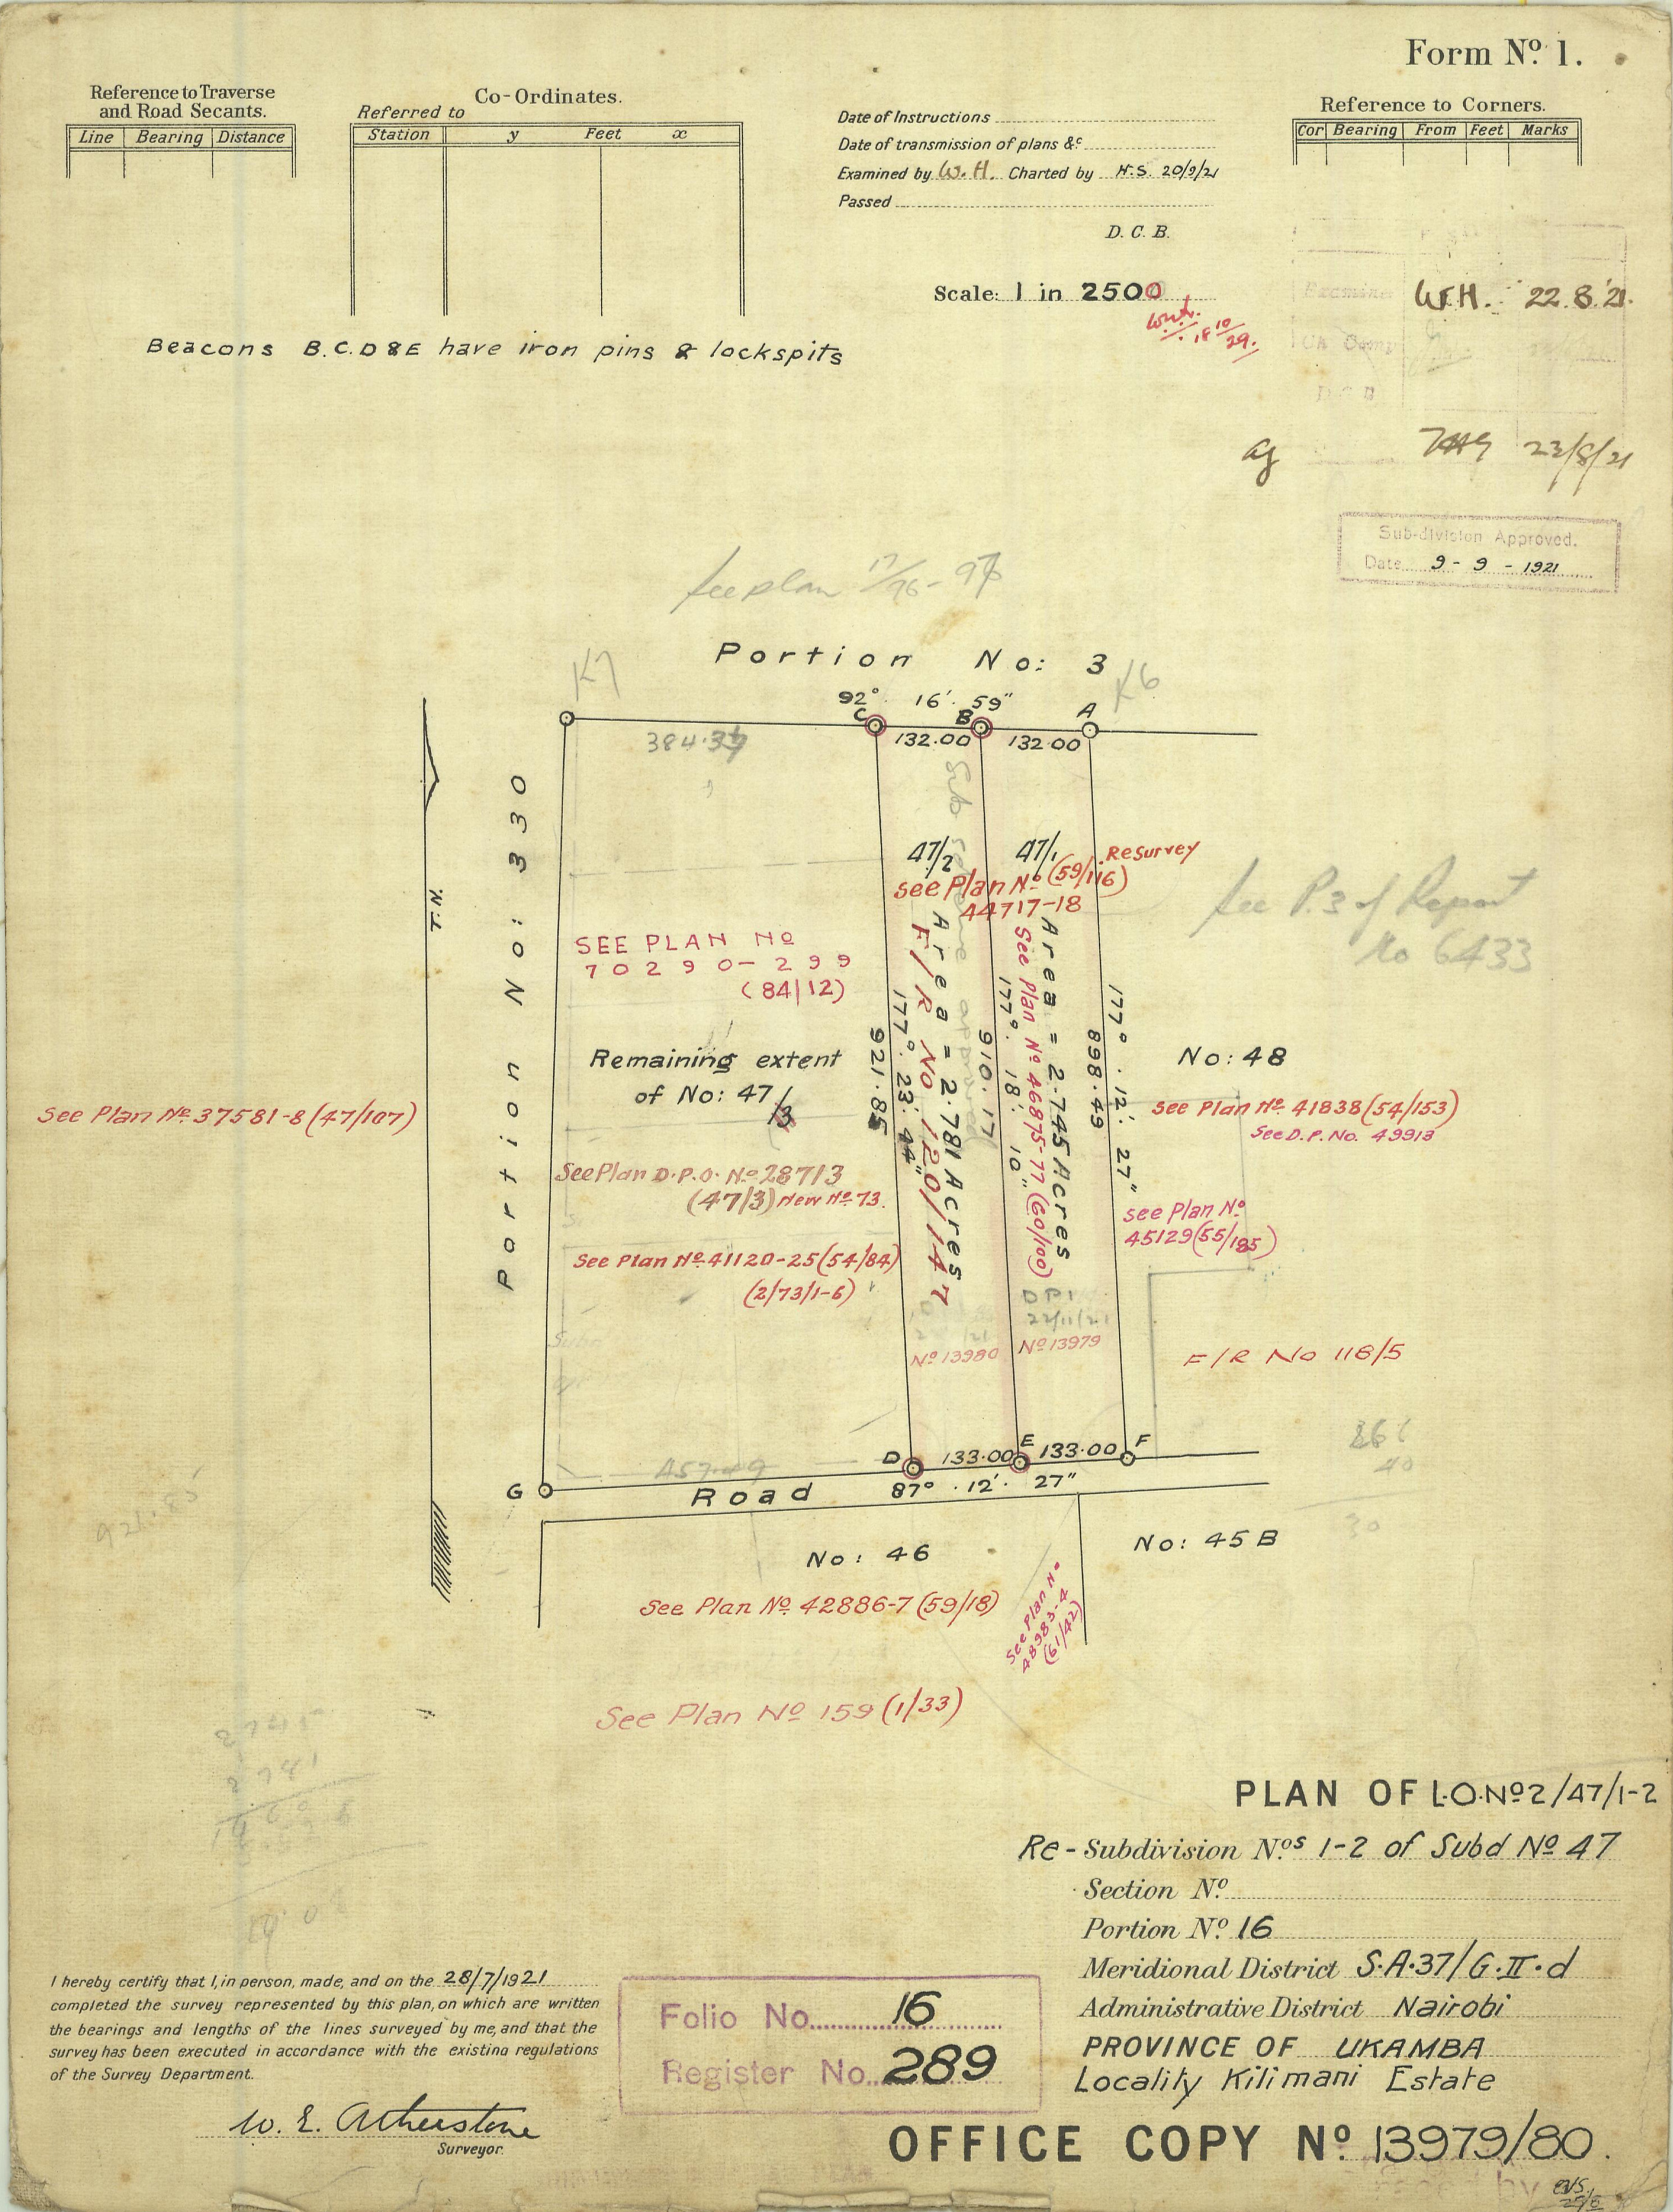 Form Nº 1.
Reference to Traverse
and Road Secants.
Line Bearing Distance
Co-Ordinates.
Referred to
Station y Feet x
Date of Instructions
Date of transmission of plans &c
Examined by W. H. Charted by H.S. 20/9/21
Passed
D. C. B.
Scale: 1 in 2500
Reference to Corners.
Cor Bearing From Feet Marks
W.H. 22.8.21.
23/8/21
Beacons B.C.D & E have iron pins & lockspits
Sub-division Approved.
Date 9 - 9 - 1921
See plan 17/76-97
Portion No: 3
K7
K6
92° 16' 59"
C B A
132.00 132.00
384.37
Portion No: 330
T.N.
47/2
47/1
Resurvey
See Plan Nº (59/116)
44717-18
See P.3 of Report
No 6433
SEE PLAN Nº
70290-299
(84/12)
Area = 2.781 Acres
F/R No 120/147
177° 23' 44"
921.85
Area = 2.745 Acres
See Plan Nº 46875-77 (60/100)
177° 18' 10"
910.17
177° 12' 27"
898.49
Remaining extent
of No: 47/3
No: 48
See Plan Nº 37581-8 (47/107)
See Plan Nº 41838 (54/153)
See D.P. No. 49913
See Plan D.P.O. Nº 28713
(47/3) New Nº 73.
See Plan Nº
45129 (55/185)
See Plan Nº 41120-25 (54/84)
(2/73/1-6)
D P 1
22/11/21
Nº 13980
Nº 13979
F/R No 118/5
D 133.00 E 133.00 F
457.49
G
Road
87° 12' 27"
921.85
No: 46
No: 45 B
See Plan Nº 42886-7 (59/18)
See Plan Nº
48983-4
(61/42)
See Plan Nº 159 (1/33)
2745
2781
PLAN OF L.O. Nº 2/47/1-2
Re-Subdivision Nºs 1-2 of Subd Nº 47
Section Nº
Portion Nº 16
Meridional District S.A.37/G.II.d
Administrative District Nairobi
PROVINCE OF UKAMBA
Locality Kilimani Estate
OFFICE COPY Nº 13979/80.
I hereby certify that I, in person, made, and on the 28/7/1921
completed the survey represented by this plan, on which are written
the bearings and lengths of the lines surveyed by me, and that the
survey has been executed in accordance with the existing regulations
of the Survey Department.
W. E. Atherstone
Surveyor.
Folio No. 16
Register No. 289